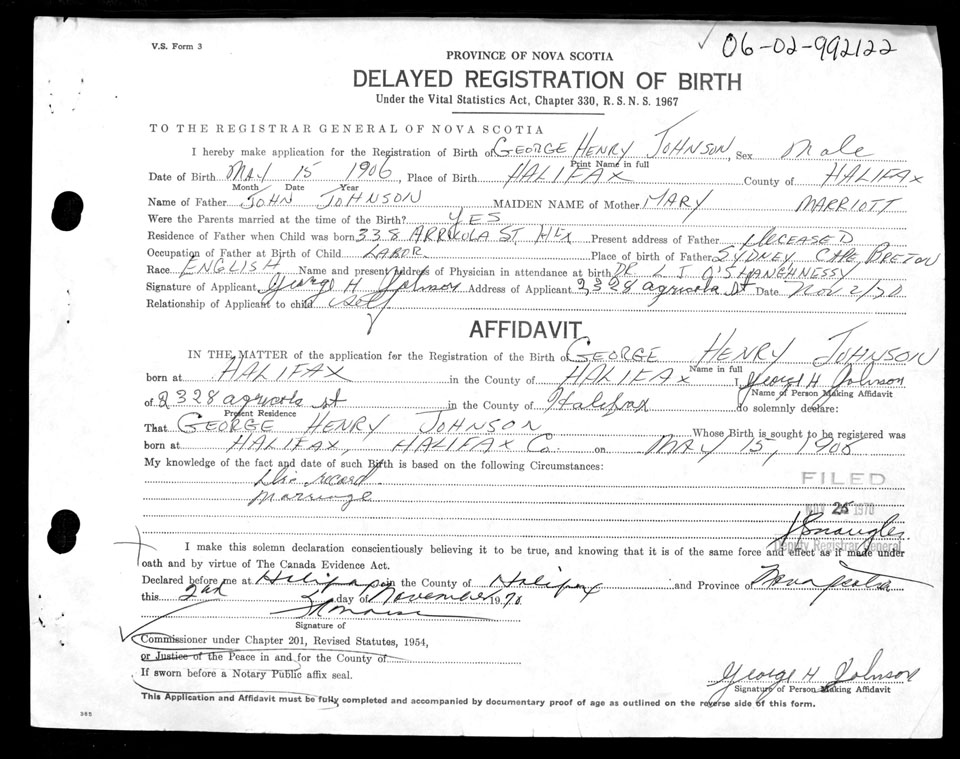 V.S. Form 3
✓ 06-02-992122
PROVINCE OF NOVA SCOTIA
DELAYED REGISTRATION OF BIRTH
Under the Vital Statistics Act, Chapter 330, R. S. N. S. 1967
TO THE REGISTRAR GENERAL OF NOVA SCOTIA
I hereby make application for the Registration of Birth of GEORGE HENRY JOHNSON, Sex Male
Print Name in full
Date of Birth MAY 15 1906, Place of Birth HALIFAX County of HALIFAX
Month Date Year
Name of Father JOHN JOHNSON MAIDEN NAME of Mother MARY MARRIOTT
Were the Parents married at the time of the Birth? YES
Residence of Father when Child was born 338 ARRICOLA ST HFX Present address of Father DECEASED
Occupation of Father at Birth of Child LABOR. Place of birth of Father SYDNEY CAPE BRETON
Race ENGLISH Name and present Address of Physician in attendance at birth DR L J O'SHANGHNESSY
Signature of Applicant George H Johnson Address of Applicant 2328 agricola St Date Nov 2/70
Relationship of Applicant to child Self
AFFIDAVIT
IN THE MATTER of the application for the Registration of the Birth of GEORGE HENRY JOHNSON
Name in full
born at HALIFAX in the County of HALIFAX I, George H Johnson
Name of Person Making Affidavit
of 2328 agricola st in the County of Halifax do solemnly declare:
Present Residence
That GEORGE HENRY JOHNSON Whose Birth is sought to be registered was
born at HALIFAX, HALIFAX Co. on MAY 15, 1906
My knowledge of the fact and date of such Birth is based on the following Circumstances:
record
Marriage
FILED
NOV 25 1970
Deputy Registrar General
I make this solemn declaration conscientiously believing it to be true, and knowing that it is of the same force and effect as if made under
oath and by virtue of The Canada Evidence Act.
Declared before me at Halifax in the County of Halifax and Province of Nova Scotia
this 2nd day of November 1970.
Signature of
Commissioner under Chapter 201, Revised Statutes, 1954,
or Justice of the Peace in and for the County of
If sworn before a Notary Public affix seal.
George H Johnson
Signature of Person Making Affidavit
This Application and Affidavit must be fully completed and accompanied by documentary proof of age as outlined on the reverse side of this form.
365